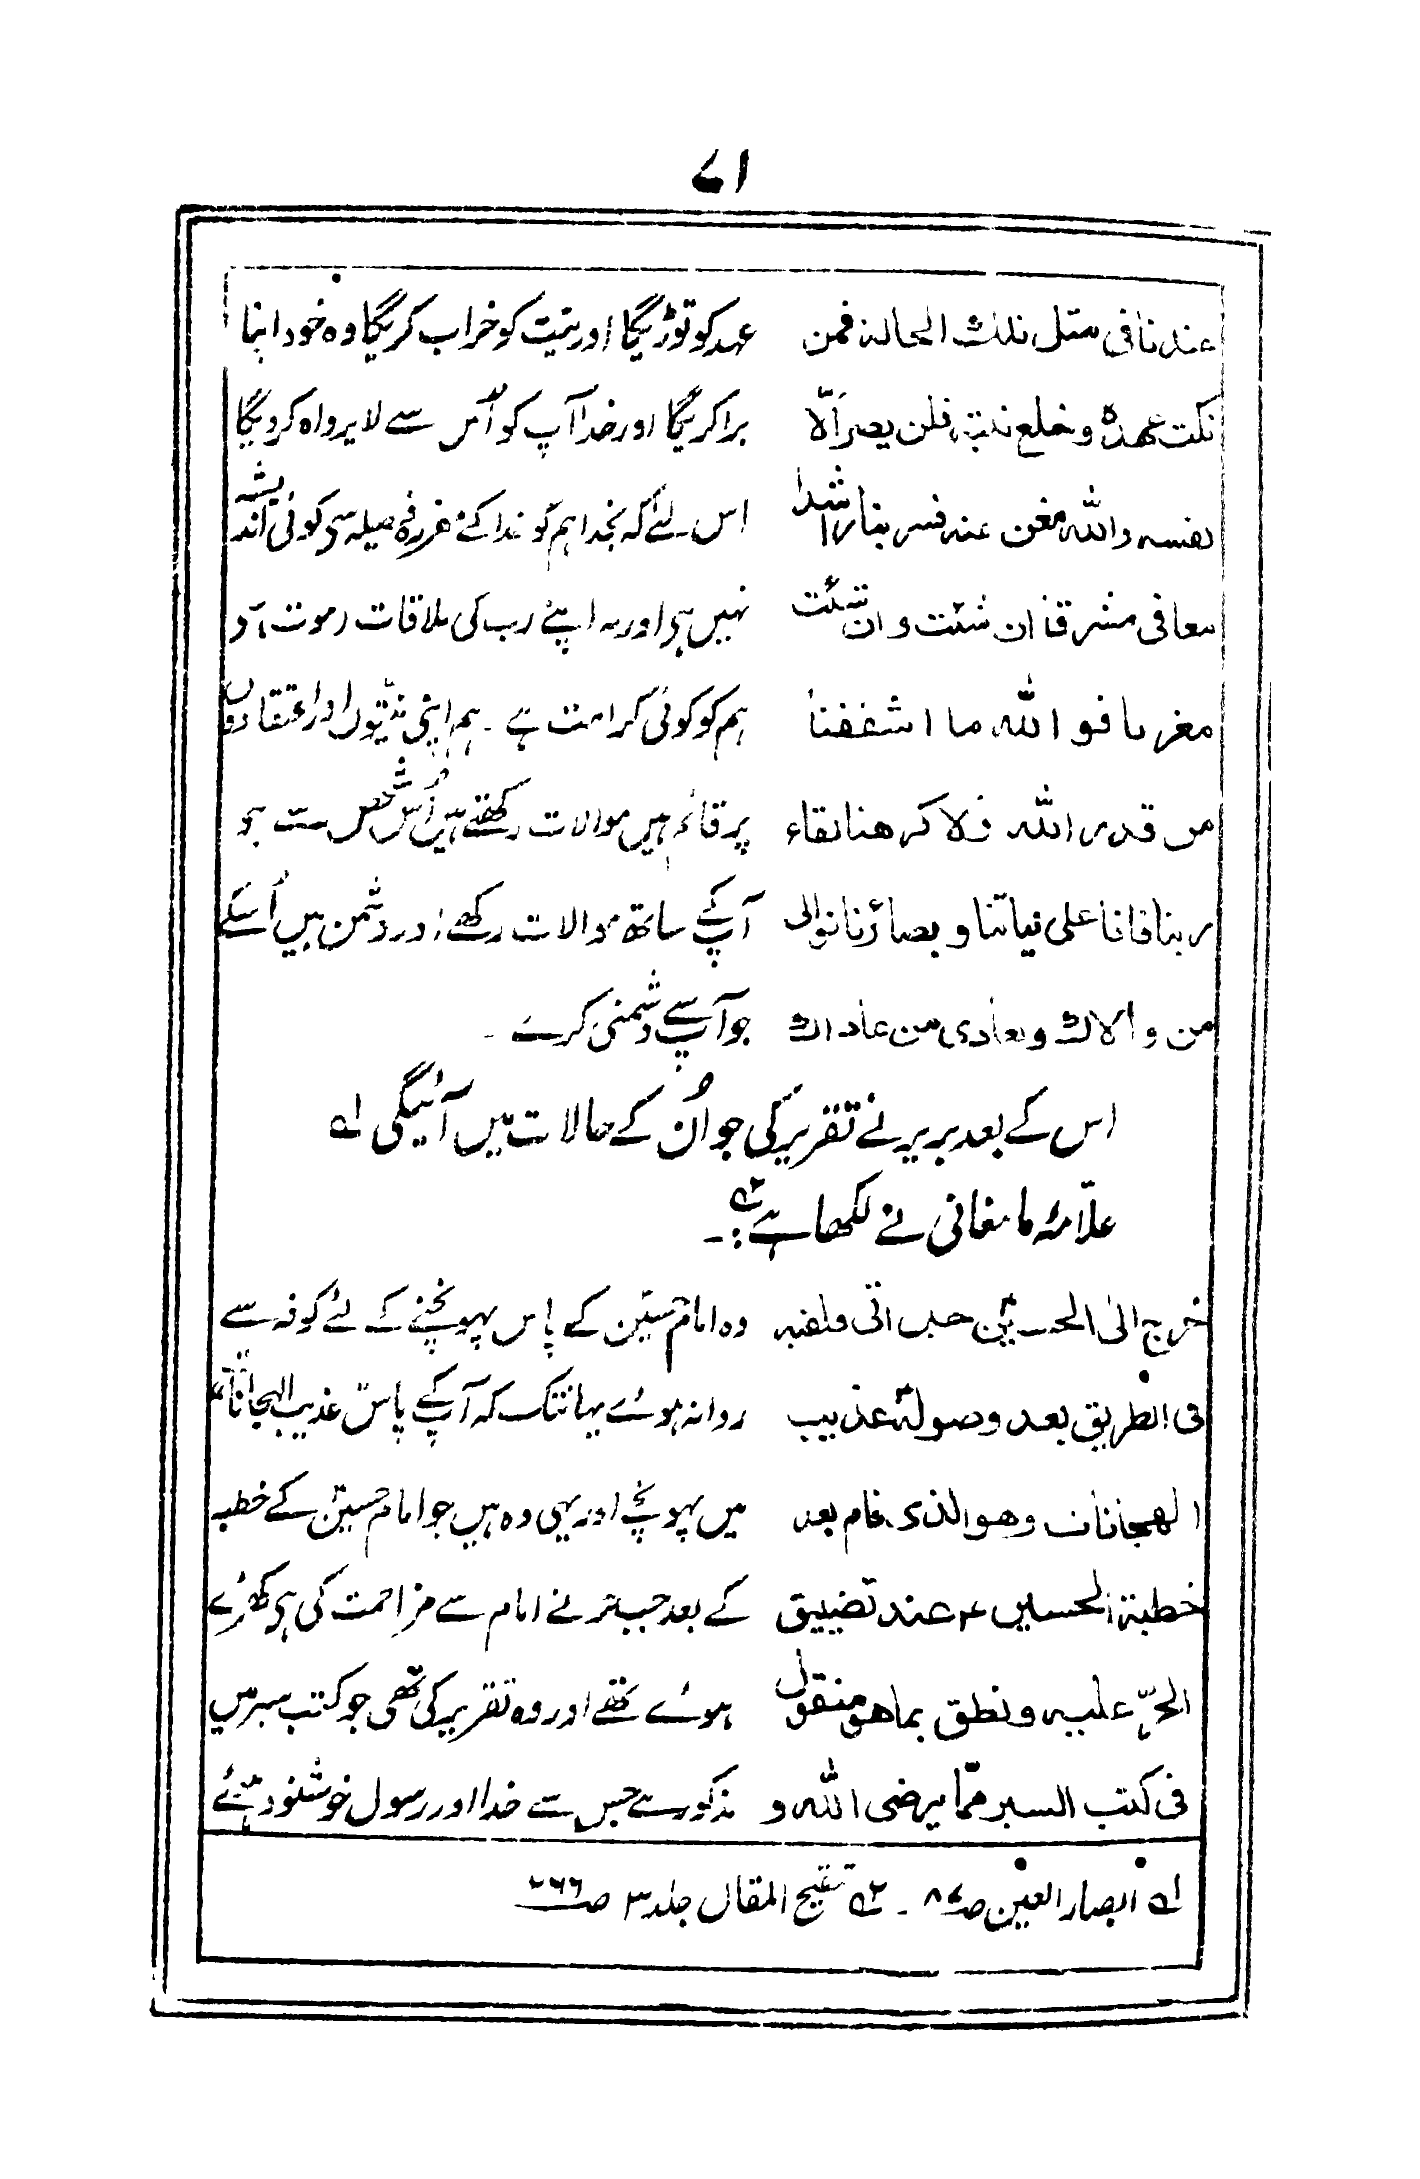 ۷۱
عندنا فی مثل تلك الحالة فمن عہد کو توڑیگا اور نیت کو خراب کریگا وہ خود اپنا
نکث عهده وخلع نیته فلن یضر الّا برا کریگا اور خدا آپ کو اُس سے لاپرواہ کردیگا
نفسه والله مغن عنه فسر بنا راشدا اس لئے کہ بخدا ہم کو خدا کے مقررہ فیصلہ سے کوئی اندیشہ
معافی مشرقا ان شئت وان شئت نہیں ہے اور نہ اپنے رب کی ملاقات (موت) سے
مغربا فوالله ما اشفقنا ہم کو کوئی کراہت ہے۔ ہم اپنی نیتوں اور اعتقادوں
من قدر الله ولا کرهنا لقاء پر قائم ہیں موالات رکھتے ہیں اُس شخص سے جو
ربنا فانا علی نیاتنا وبصائرنا نوالی آپ کے ساتھ موالات رکھے اور دشمن ہیں اُسکے
من والاك ونعادی من عاداك جو آپ سے دشمنی کرے۔
اس کے بعد بریر نے تقریر کی جو اُن کے حالات میں آئیگی لہ
علامہ مامقانی نے لکھا ہے ۲؎:۔
خرج الیٰ الحسینؑ حتی اتی ولقیه وہ امام حسینؑ کے پاس پہونچنے کے لئے کوفہ سے
فی الطریق بعد وصوله عذیب روانہ ہوئے یہانتک کہ آپ کے پاس عذیب الہجانات
الهجانات وهو الذی قام بعد میں پہونچے اور یہی وہ ہیں جو امام حسینؑ کے خطبہ
خطبة الحسین ؑ عند تضییق کے بعد جب حر نے امام سے مزاحمت کی ہے کھڑے
الحرّ علیه ونطق بما هو منقول ہوئے تھے اور وہ تقریر کی تھی جو کتب سیر میں
فی کتب السیر ممّا یرضی الله و مذکور ہے جس سے خدا اور رسول خوشنود ہوئے
لہ ابصار العین ص۸۷۔ ۲؎ تنقیح المقال جلد ۳ ص۲۶۶